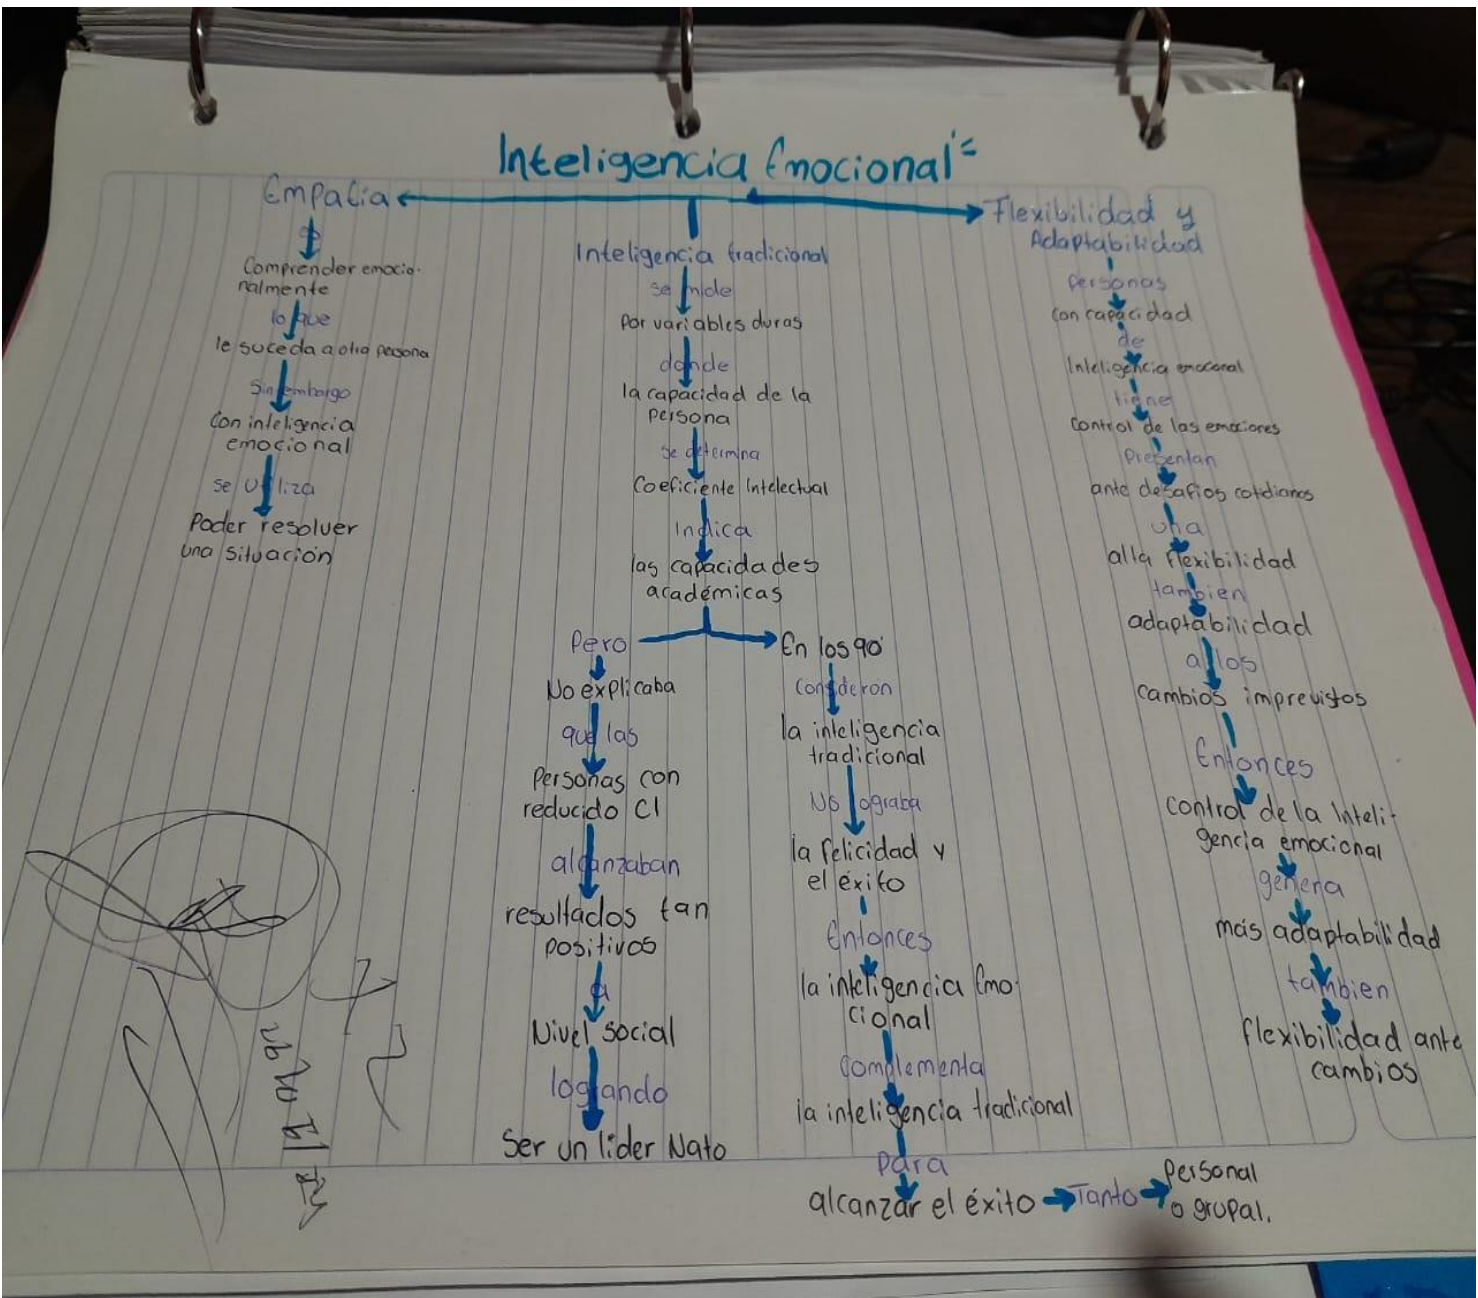 Inteligencia Emocional:
Empatia
Comprender emocio-
nalmente
lo que
le suceda a otra persona
Sin embargo
Con inteligencia
emocional
se utiliza
Poder resolver
una situación
Inteligencia tradicional
se mide
Por variables duras
donde
la capacidad de la
persona
se determina
Coeficiente Intelectual
Indica
las capacidades
académicas
Pero
No explicaba
que las
Personas con
reducido CI
alcanzaban
resultados tan
positivos
a
Nivel social
logrando
Ser un lider Nato
En los 90'
Consideron
la inteligencia
tradicional
No lograba
la felicidad y
el éxito
Entonces
la inteligencia Emo-
cional
Complementa
la inteligencia tradicional
para
alcanzar el éxito Tanto Personal
o grupal.
Flexibilidad y
Adaptabilidad
personas
con capacidad
de
Inteligencia emocional
tiene
Control de las emociones
Presentan
ante desafios cotidianos
una
alta flexibilidad
tambien
adaptabilidad
a los
cambios imprevistos
Entonces
control de la Inteli-
gencia emocional
genera
más adaptabilidad
tambien
flexibilidad ante
cambios